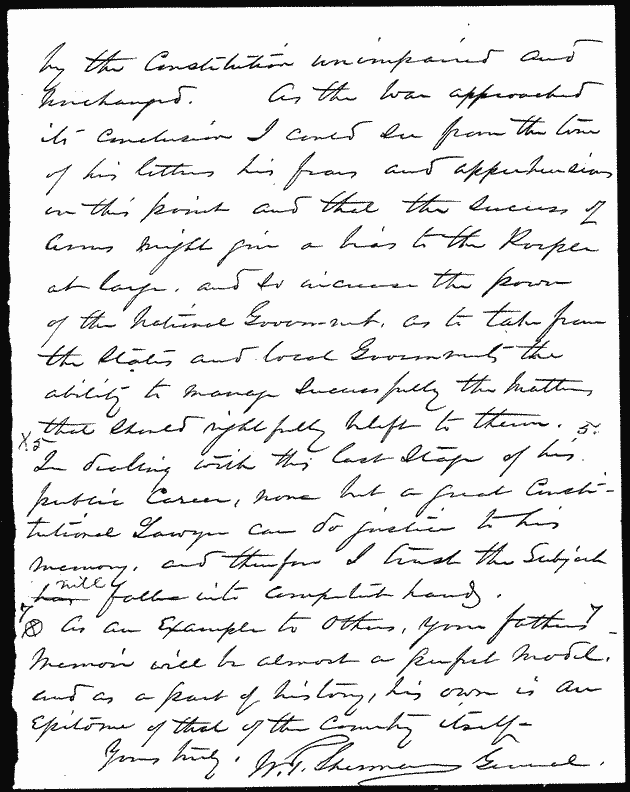 by the Constitution unimpaired and
unchanged. As the War approached
its conclusion I could see from the tone
of his letters his fears and apprehensions
on this point and that the success of
Arms might give a bias to the People
at large, and so increase the power
of the National Government, as to take from
the States and local Governments the
ability to manage successfully the matters
that should rightfully be left to them. 5.
X5
In dealing with this last Stage of his
public Career, none but a great Consti-
tutional Lawyer can do justice to his
memory, and therefore I trust the Subject
will
has fallen into competent hands.
7 7
As an Example to Others, your father's
Memoir will be almost a perfect Model,
and as a part of history, his own is an
Epitome of that of the Country itself-
Yours truly,
W. T. Sherman General.